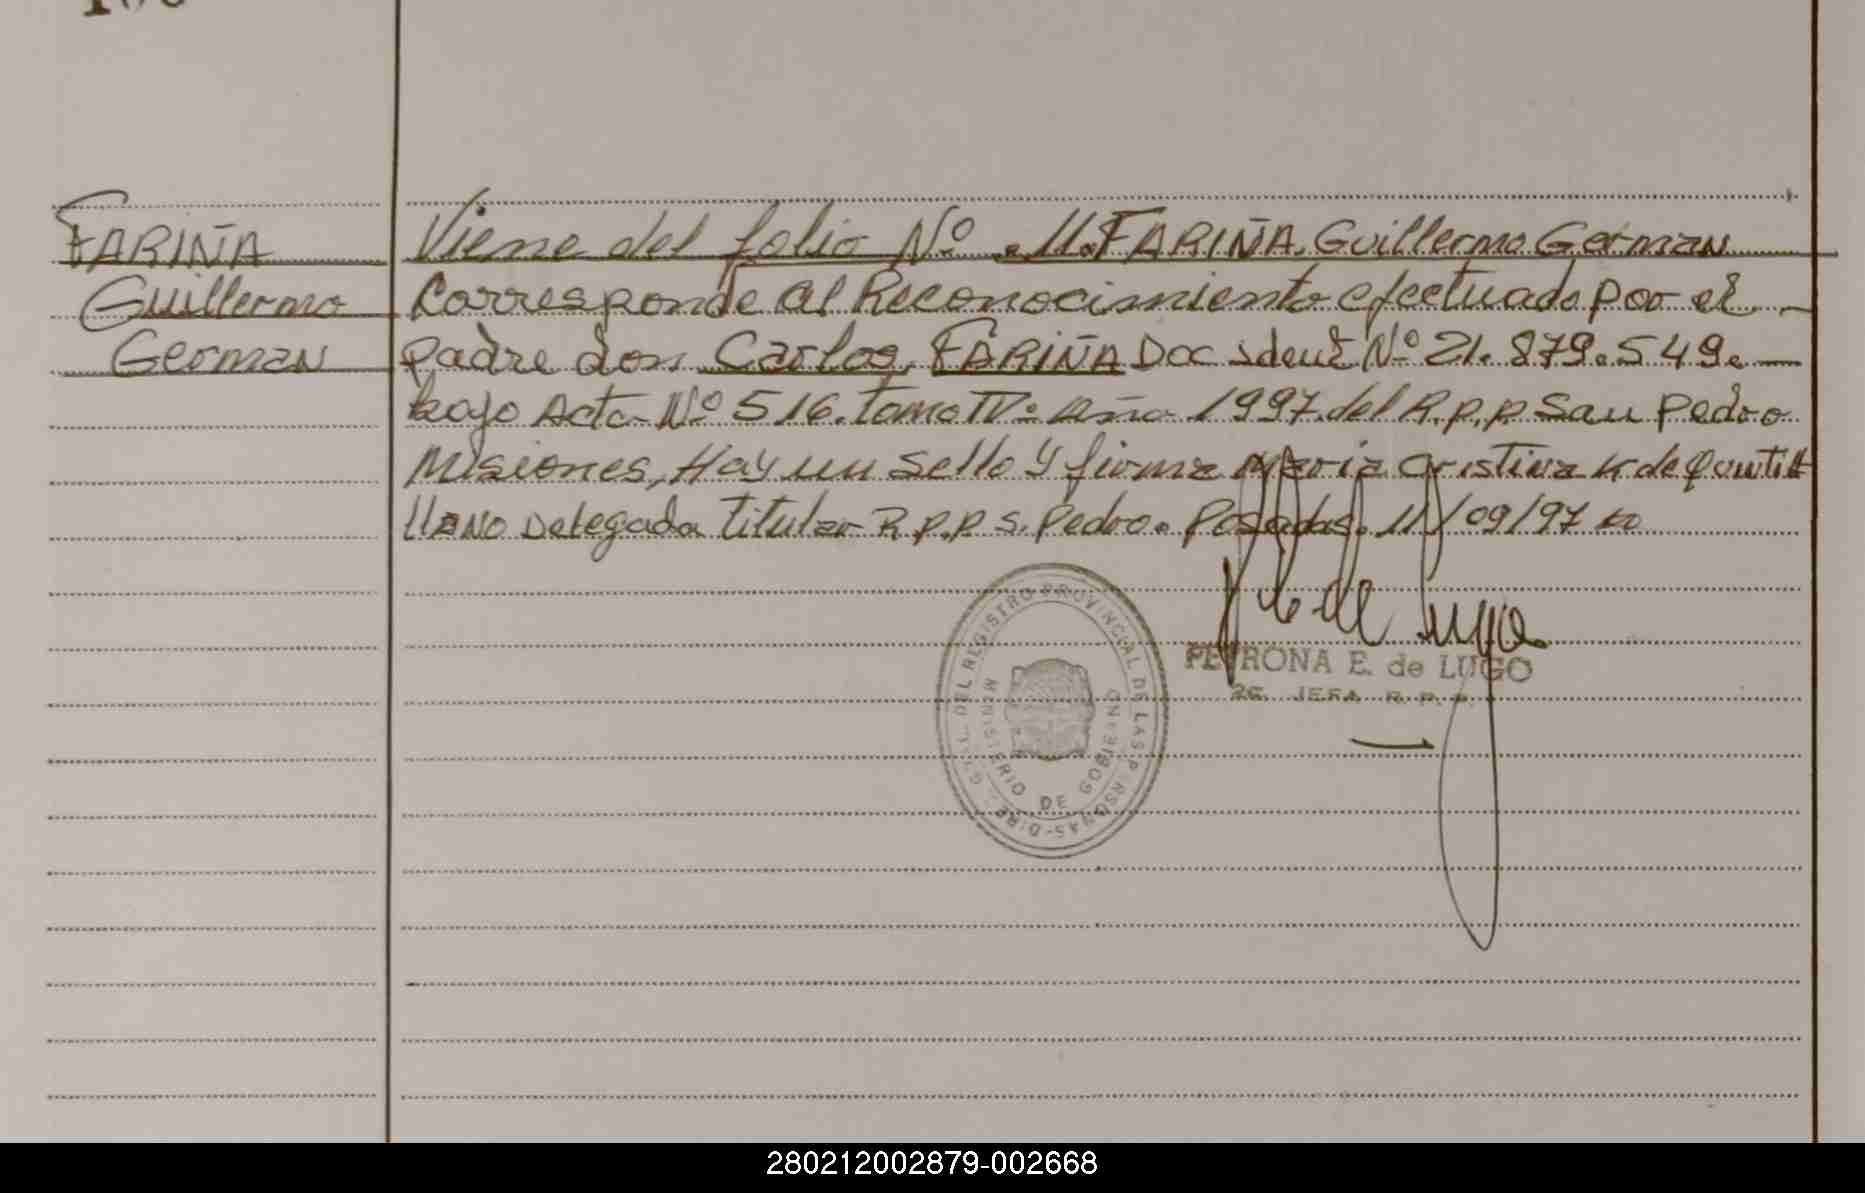 FARIÑA
Guillermo
German
Viene del folio Nº 11. FARIÑA, Guillermo German
Corresponde al Reconocimiento efectuado por el
padre don Carlos, FARIÑA Doc ident Nº 21.879.549.
bajo Acta Nº 516. tomo IV. año 1997. del R.P.P. San Pedro
Misiones, Hay un sello y firma Maria Cristina K de
llano Delegada titular R.P.P. S. Pedro. Posadas. 11/09/97
DEL REGISTRO PROVINCIAL DE LAS PERSONAS
MINISTERIO DE GOBIERNO
PETRONA E. de LUGO
JEFA R. P. P.
280212002879-002668